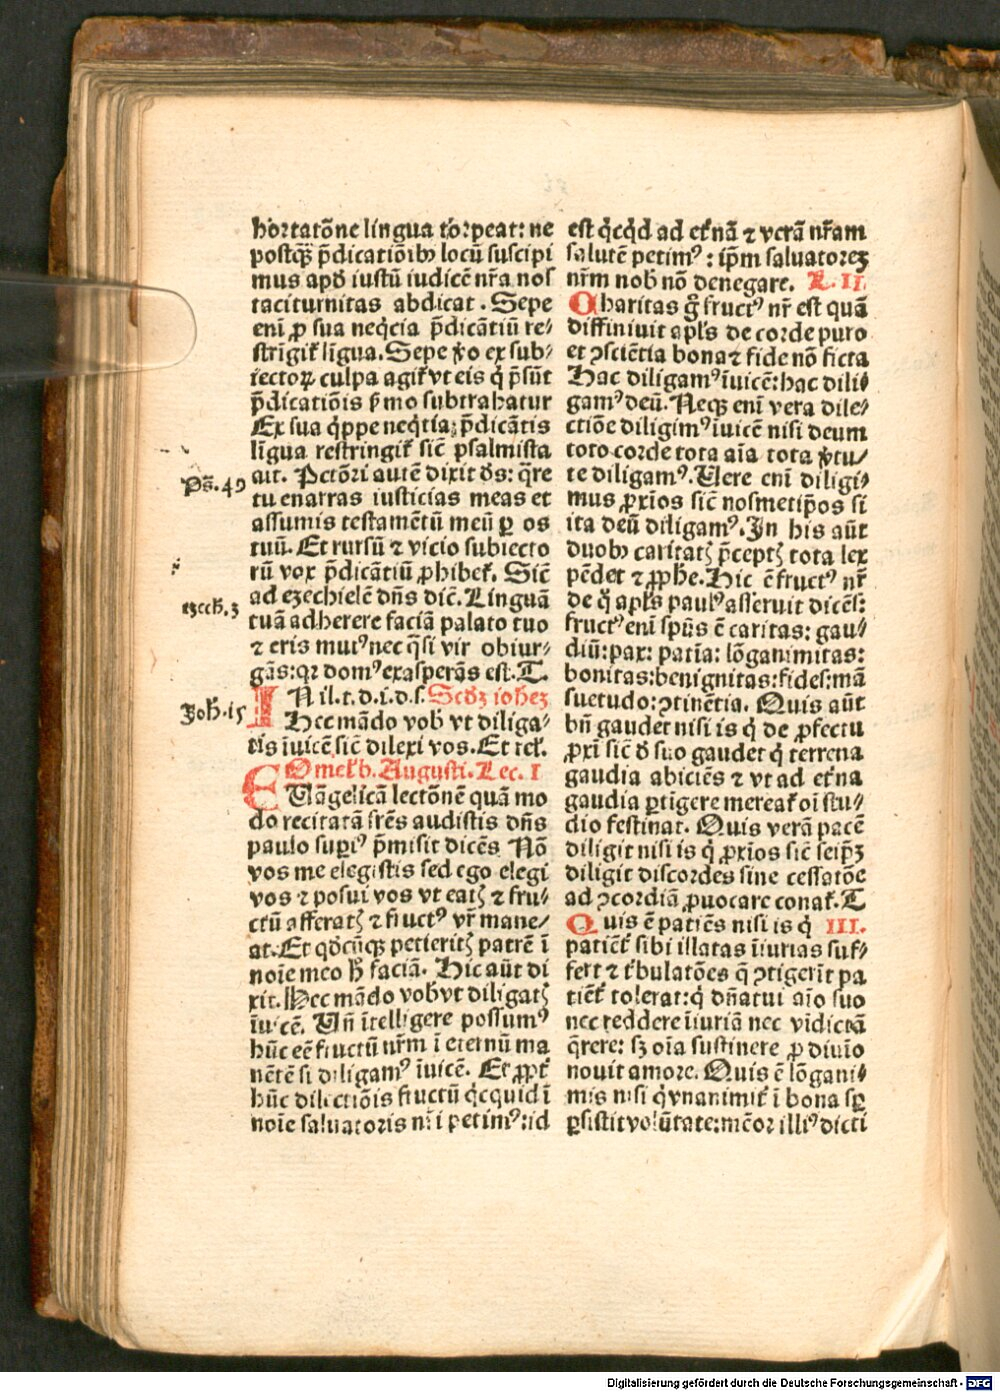 hortatōne lingua torpeat: ne
postqꝫ p̄dicatiōibꝰ locū suscipi
mus apd̄ iustū iudicē nr̄a nos
taciturnitas abdicat. Sepe
eni ꝓ sua neq̇cia p̄dicātiū re⸗
strīgit᷑ līgua. Sepe v̊o ex sub⸗
iectoꝝ culpa agit᷑ vt eis q̇ p̄sūt
p̄dicatiōis s̄mo subtrahatur
Ex sua q̇ppe neq̇tia; p̄dicātis
līgua restringit᷑ sic̄ psalmista
ait. Pctōri autē dixit ds̄: q̄re
tu enarras iusticias meas et
assumis testamētū meū ꝑ os
tuū. Et rursū ⁊ vicio subiecto
rū vox p̄dicātiū ꝓhibet᷑. Sic̄
ad ezechielē dn̄s dic̄. Linguā
tuā adherere faciā palato tuo
⁊ eris mutꝰ nec q̄si vir obiur⸗
gās: qꝛ domꝰ exasperās est. T.
IN il. t. d. i. d. s. Scd̄ꝫ iohēꝫ
Hec mādo vob̄ vt diliga⸗
tis īuicē sic̄ dilexi vos. Et rel̄.
Omel̄ b. Augusti. Lec. I
EUāgelicā lectōnē quā mo
do recitatā fr̄es audistis dn̄s
paulo supiꝰ p̄misit dicēs Nō
vos me elegistis sed ego elegi
vos ⁊ posui vos vt eatꝭ ⁊ fru⸗
ctū afferatꝭ ⁊ fructꝰ vr̄ mane⸗
at. Et qd̄cūqꝫ petieritꝭ patrē ī
noīe meo h̄ faciā. Hic aūt di
xit. Hec mādo vob̄ vt diligatꝭ
īuicē. Un̄ ītelligere possumꝰ
hūc eē fructū nr̄m ī eternū ma
nētē si diligamꝰ īuicē. Et ꝓpt̄
hūc dilectiōis fructū q̇cquid ī
noīe saluatoris nr̄i petimꝰ: id
est q̇cq̇d ad et̄nā ⁊ verā nr̄am
salutē petimꝰ: ip̄m saluatorēꝫ
nr̄m nob̄ nō denegare. L. II.
Charitas g̊ fructꝰ nr̄ est quā
diffiniuit apl̄s de corde puro
et ꝯsciētia bona ⁊ fide nō ficta
Hac diligamꝰ īuicē: hac dili⸗
gamꝰ deū. Neqꝫ eni vera dile⸗
ctiōe diligimꝰ īuicē nisi deum
toto corde tota aīa tota v̊tu⸗
te diligamꝰ. Uere eni diligi⸗
mus ꝓxīos sic̄ nosmetip̄os si
ita deū diligamꝰ. In his aūt
duobꝰ caritatꝭ p̄ceptꝭ tota lex
pēdet ⁊ ꝓphe. Hic ē fructꝰ nr̄
de q̊ apl̄s paulꝰ asseruit dicēs:
fructꝰ eni sp̄us ē caritas: gau⸗
diū: pax: patīa: lōganimitas:
bonitas: benignitas: fides: mā
suetudo: ꝯtinētia. Quis aūt
bn̄ gaudet nisi is q̇ de ꝓfectu
ꝓxi sic̄ d̄ suo gaudet q̇ terrena
gaudia abiciēs ⁊ vt ad et̄na
gaudia ꝑtīgere mereat᷑ oī stu⸗
dio festinat. Quis verā pacē
diligit nisi is q̇ ꝓxīos sic̄ seip̄ꝫ
diligit discordes sine cessatōe
ad ꝯcordiā ꝓuocare conat᷑. T
Quis ē patiēs nisi is q̇ III.
patiēt̄ sibi illatas īiurias suf⸗
fert ⁊ t̄bulatōes q̄ ꝯtigerīt pa
tiēt̄ tolerat: q̇ dn̄atui aīo suo
nec reddere īiuriā nec vīdictā
q̄rere: sꝫ oīa sustinere ꝓ diuīo
nouit amore. Quis ē lōgani⸗
mis nisi q̇ vnanimit᷑ ī bona sꝑ
ꝑsistit volūtate: mēor illiꝰ dicti
Ps̄. 49
ezech. 3
Joh̄. 15
Digitalisierung gefördert durch die Deutsche Forschungsgemeinschaft - DFG